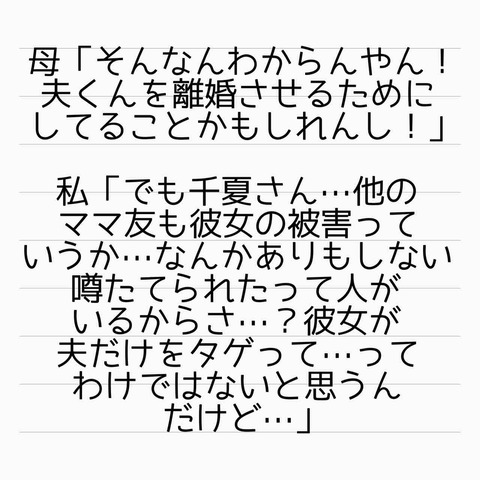 母「そんなんわからんやん！
夫くんを離婚させるために
してることかもしれんし！」
私「でも千夏さん…他の
ママ友も彼女の被害って
いうか…なんかありもしない
噂たてられたって人が
いるからさ…？彼女が
夫だけをタゲって…って
わけではないと思うん
だけど…」